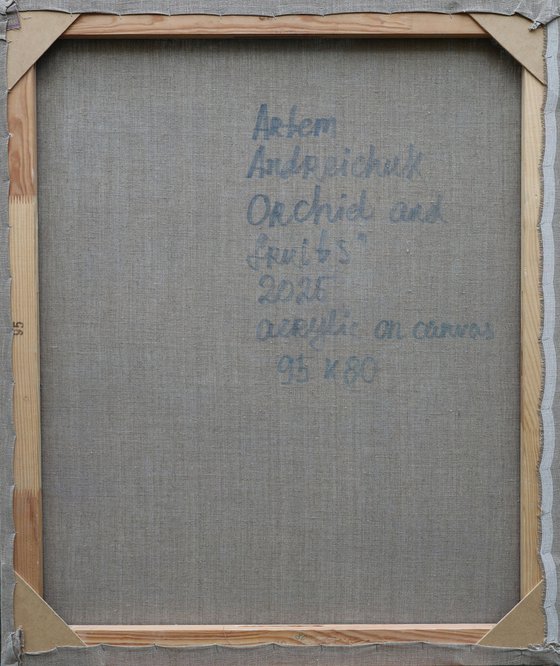 Artem
Andreichuk
Orchid and
fruits"
2025
acrylic on canvas
95 x 80
95